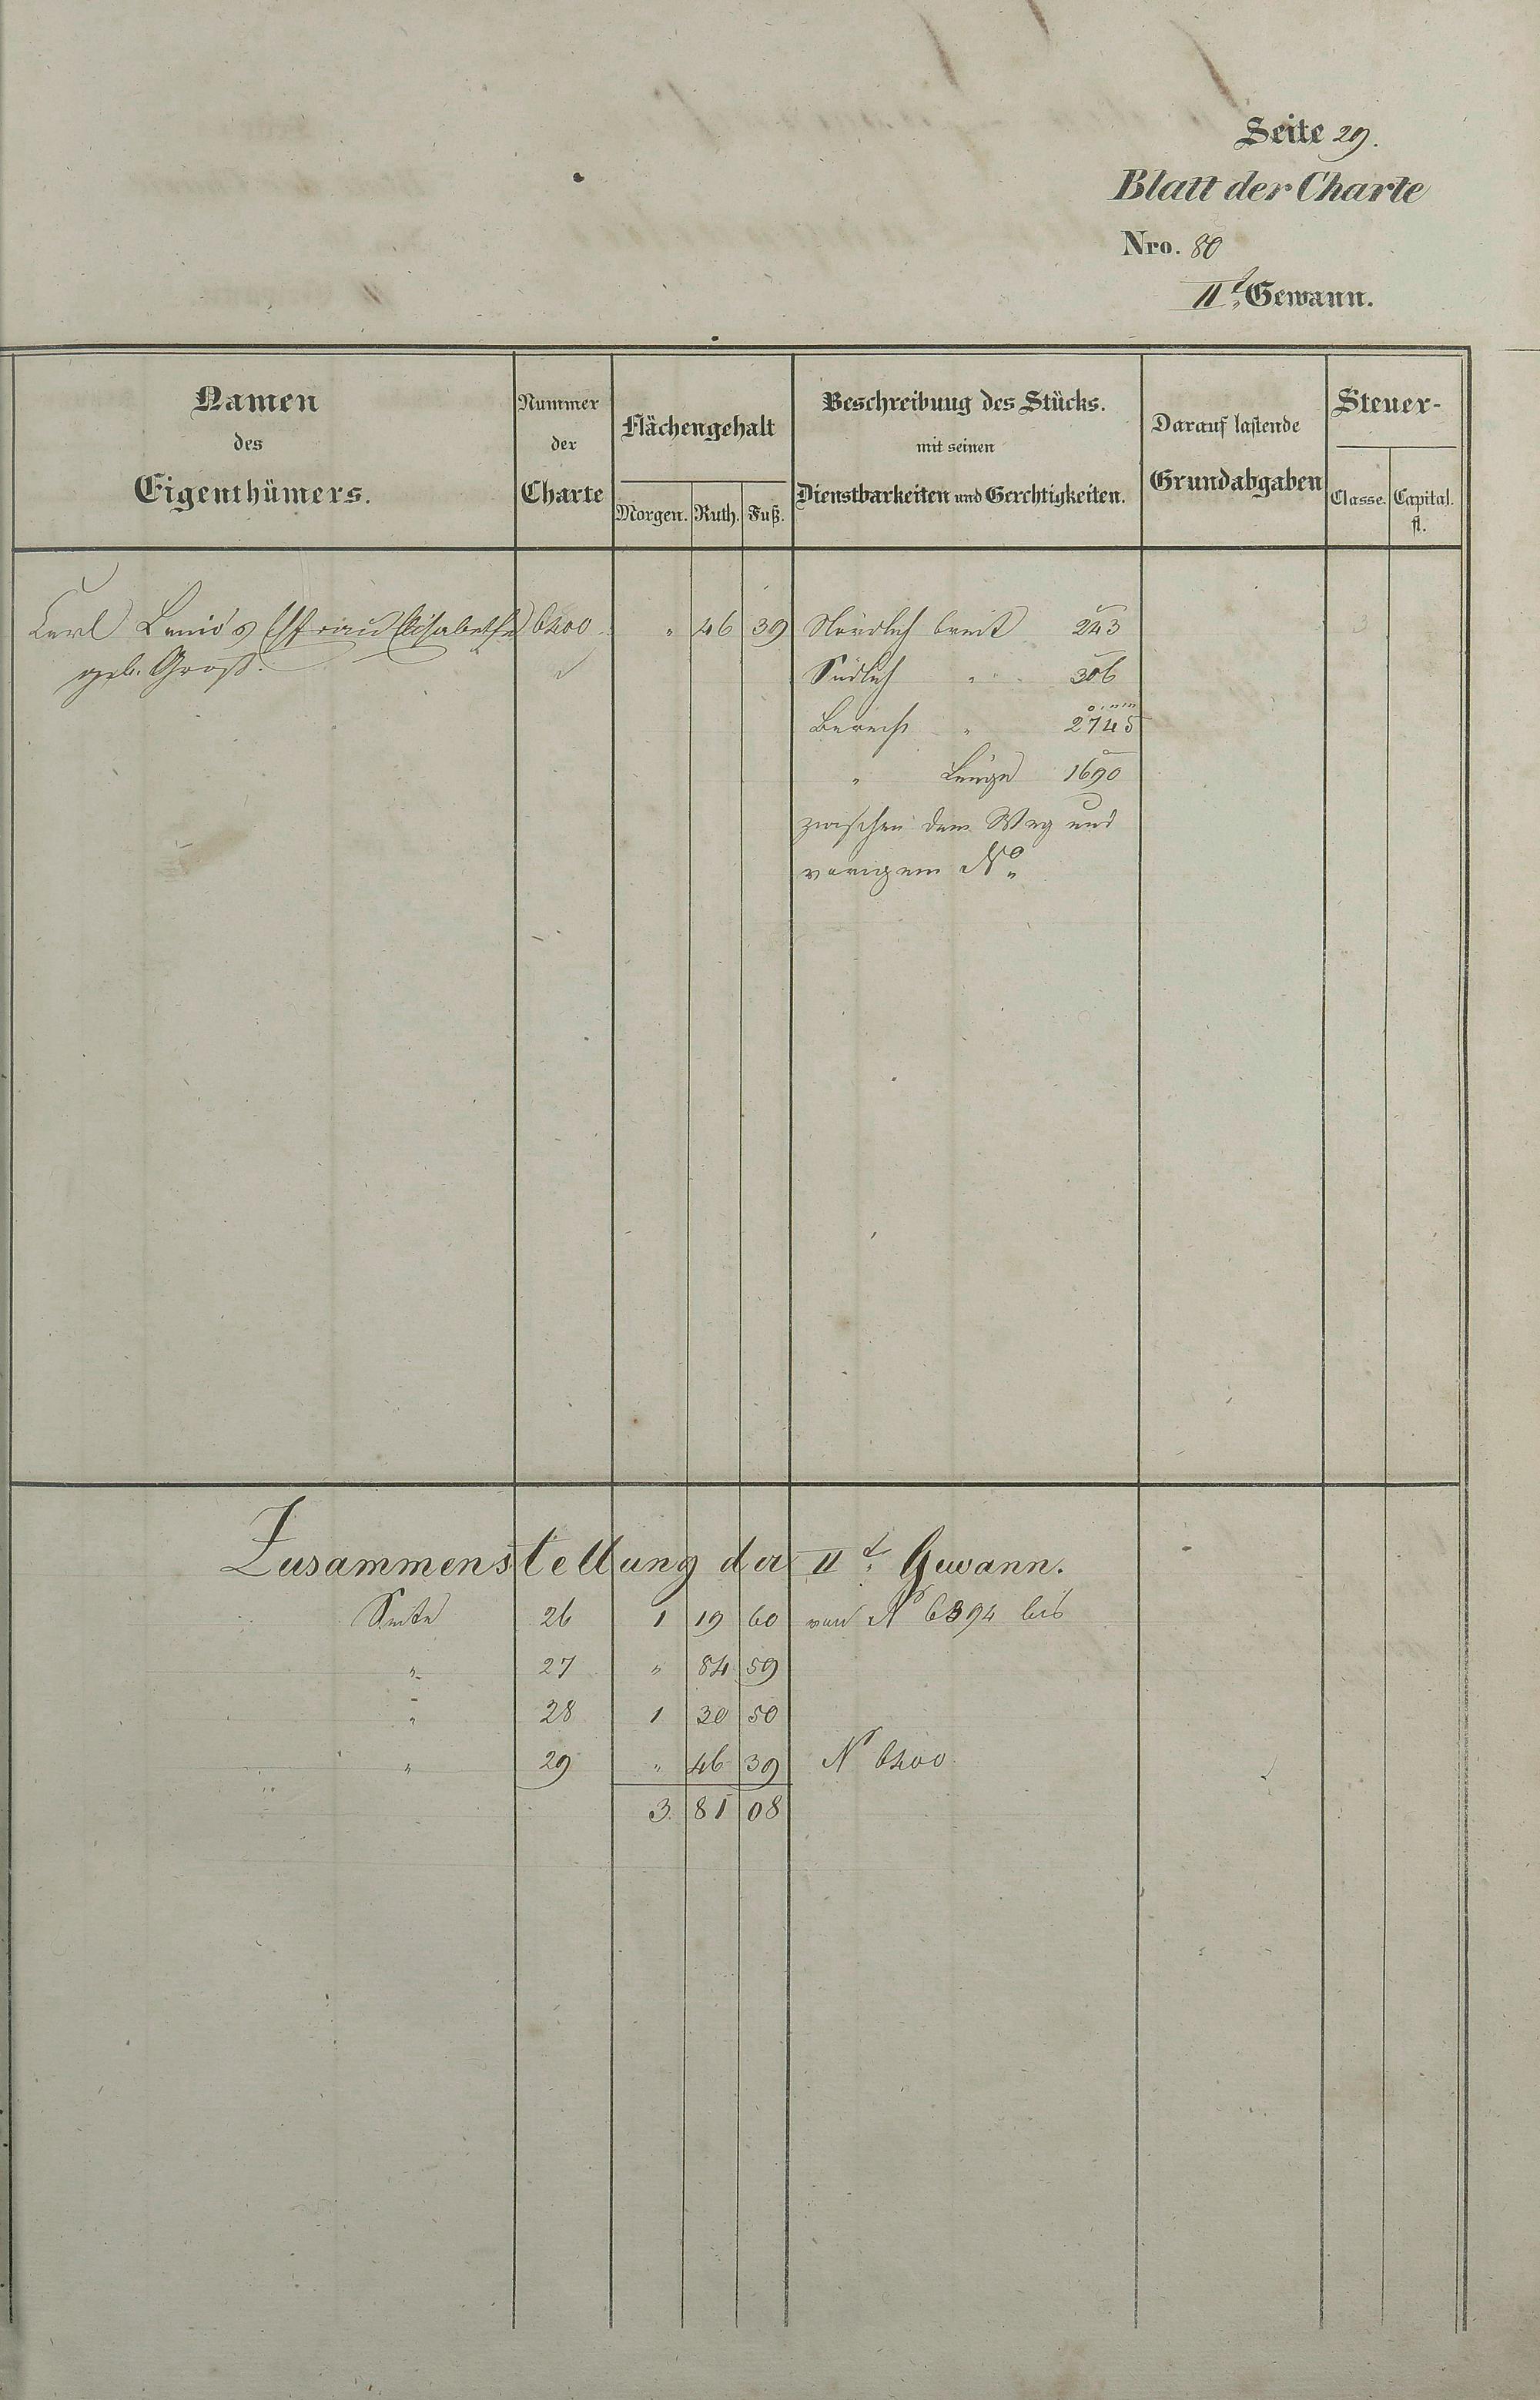 Seite 29.
Blatt der Charte
Nro. 80
IIt. Gewann.
Namen des Eigenthümers.
Nummer der Charte
Flächengehalt
Morgen. Ruth. Fuß.
Beschreibung des Stücks.
mit seinen
Dienstbarkeiten und Gerechtigkeiten.
Darauf lastende
Grundabgaben
Steuer-
Classe. Capital.
fl.
Carl Ehefrau Elisabetha 6400 " 46 39 Nördlich breit 243
geb. Groß. Südlich " 306
Berech " 2745
" Länge 1690
zwischen dem Weg und
vorigem No.
Zusammenstellung der IIt. Gewann.
Seite 26 1 19 60 von No 6394 bis
" 27 " 84 59
" 28 1 30 50
" 29 " 46 39 No 6400
3. 81 08